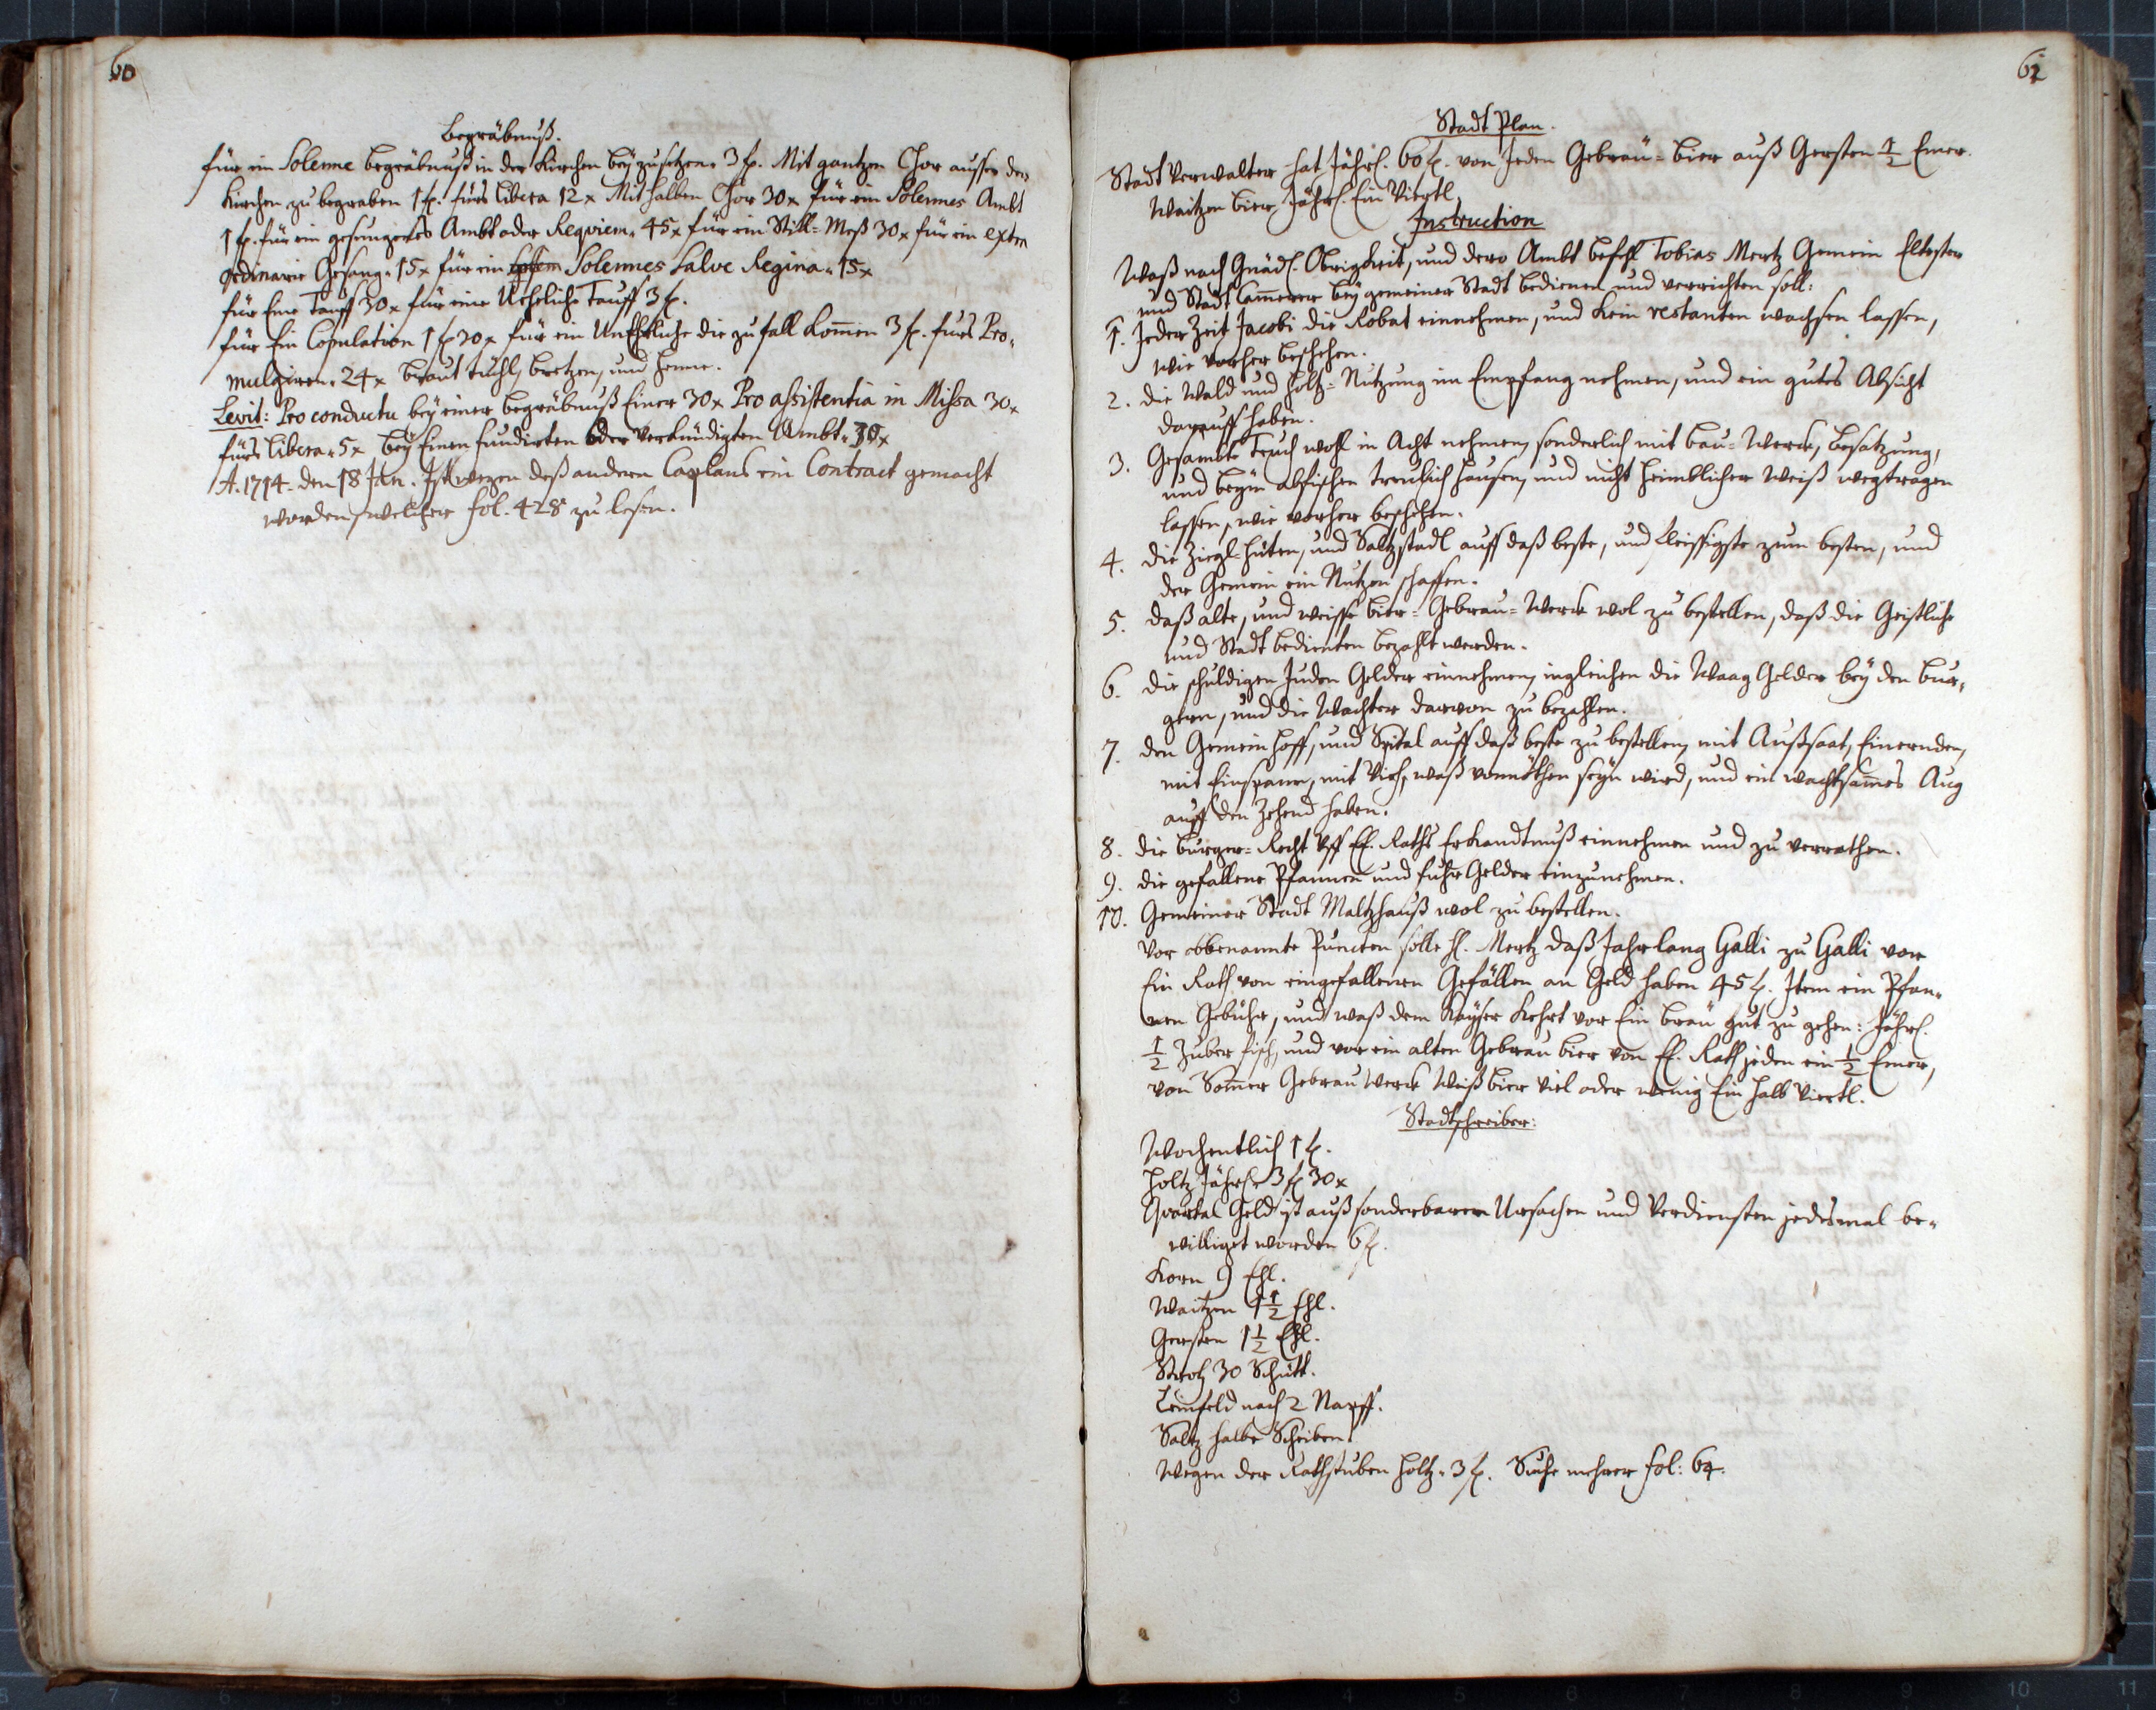 60
Begräbnuß.
für ein Solenne begräbnuß in der Kirchen beÿzusetzen. 3 fl. Mit gantzen Chor ausser der
Kirchen zu begraben 1 fl. fürs Libera 12 x Mit halben Chor 30 x für ein Solennes Ambt
1 fl. für ein gesungenes Ambt oder Reqviem. 45 x für ein Still-Meß 30 x für ein extra
ordinarie Gesang. 15 x für ein Solennes Salve Regina. 15 x
für Eine Tauff 30 x für eine Uneheliche Tauff 3 fl.
für Ein Copulation 1 fl 30 x für ein Unehrliche die zu fall kom̄en 3 fl. fürs Pro-
mulgiren. 24 x braut tüchl, bretzen, und henne.
Levit: Pro conductu beÿ einer begräbnuß Einer 30 x Pro assistentia in Missa 30 x
fürs Libera. 5 x beÿ Einen fundirten oder verkündigten Ambt. 30 x
A. 1714. den 18 Jan. Ist wegen deß andern Caplans ein Contract gemacht
worden, welcher fol. 428 zu lesen.
61
Stadt Plan.
Stadt Verwalter hat Jährl. 60 fl. von Jeden Gebräu-bier auß Gersten ½ Emer.
Waitzen bier Jährl. Ein Viertl
Instruction
Waß nach Gnäd. Obrigkeit, und dero Ambt befehl Tobias Mertz Gemein Eltester
und Stadt Cam̄erer beÿ gemeiner Stadt bedienen und verrichten soll:
1. Jeder Zeit Jacobi die Robat einnehmen, und kein restanten wachsen lassen,
wie vorher beschehen.
2. die Wald und holtz-Nutzung im Empfang nehmen, und ein gutes Absicht
darauff haben.
3. Gesambte Teuch wohl in Acht nehmen, sonderlich mit bau-Werck, besatzung,
und beÿm abfischen treulich hausen, und nicht heimblicher Weiß wegtragen
lassen, wie vorher beschehen.
4. die Ziegl-hüten, und Saltzstadl auff daß beste, und fleissigste zum besten, und
der Gemein ein Nutzen schaffen.
5. daß alte, und weisse bier-Gebrau-Werck wol zu bestellen, daß die Geistliche
und Stadt bedienten bezahlt werden.
6. die schuldigen Juden Gelder einnehmen, ingleichen die Waag Gelder beÿ den bur-
gern, und die Wachter darvon zu bezahlen.
7. den Gemein hoff, und Spital auff daß beste zu bestellen, mit Außsaat, Einernden,
mit Einspann, mit Vieh, waß vonnöthen seÿn wird, und ein wachtsam̄es Aug
auff den Zehend haben.
8. die burger-Recht Eh. Raths Erkandtnuß einnehmen und zu verrathen.
9. die gefallene Pfannen und fuhr Gelder einzunehmen.
10. Gemeiner Stadt Maltzhauß wol zu bestellen.
Vor obbenannte Puncten solle H. Mertz daß Jahr lang Galli zu Galli von
Ein Rath von eingefallenen Gefällen an Geld haben 45 fl. Item ein Pfan-
nen Gebühr, und waß dem Kaÿser kehrt vor Ein bräu gut zu gehen: Jährl.
½ Zuber fisch, und vor ein alten Gebräu bier von E. Rath jeden ein ½ Emer,
von Som̄er Gebrau Werck Weiß bier viel oder wenig Ein halb Viertl.
Stadtschreiber:
Wochentlich 1 fl.
holtz Jährl. 3 fl 30 x
Qvartal Geld ist auß sonderbaren Ursachen und Verdiensten jedesmal be-
williget worden 6 fl.
Korn 9 Chl.
Waitzen 1½ Chl.
Gersten 1½ Chl.
Stroh 30 Schütt.
Leinfeld nach 2 Napff.
Saltz halbe Scheiben.
Wegen der Rathstuben holtz. 3 fl. Suche mehrer fol: 64.